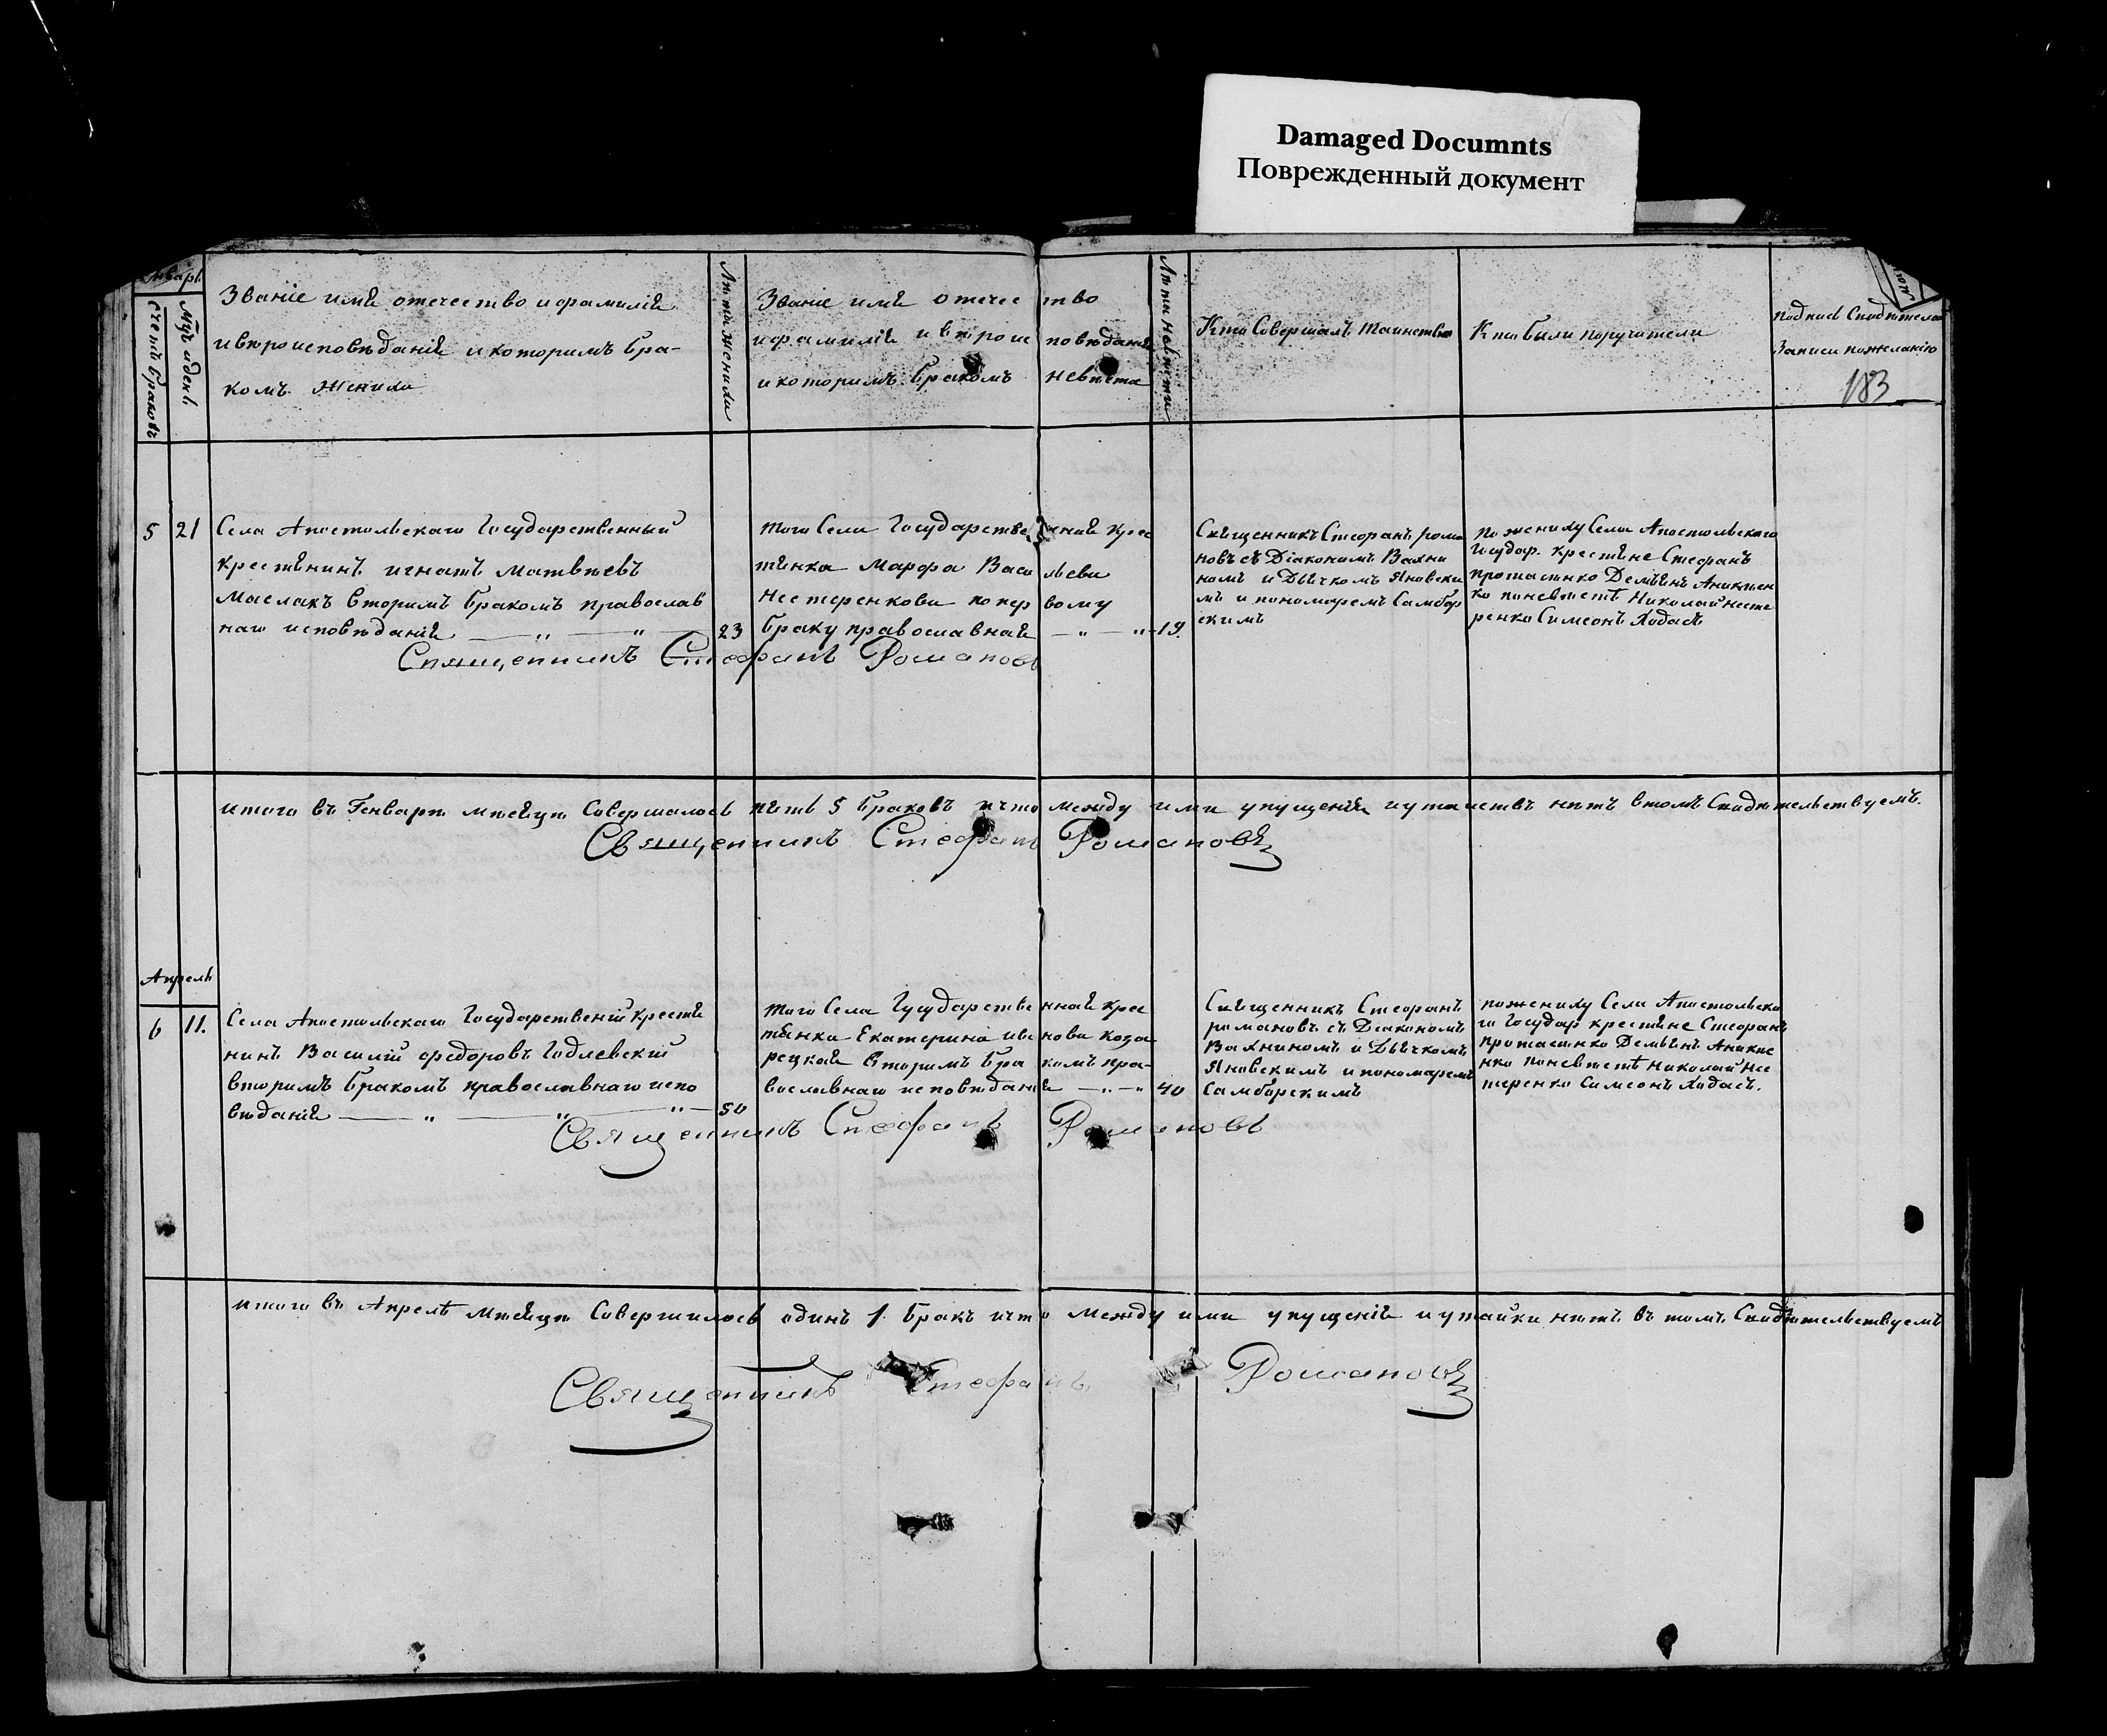 Damaged Documnts
Поврежденный документ
Январь
Счетъ браковъ
Мцъ и день
Званіе имя отечество и фамилія
и вѣроисповѣданія и которимъ бра-
комъ женихи
Лѣта жениха
Званіе имя отечес тво
и фамилія и вѣроис повѣданія
и которимъ бракомъ невѣста
Лѣта невѣсти
Кто Совершалъ таинство
Кто были поручители
подпись Свидѣтелей
Записи по желанію
183
5 21
Села Апостольскаго Государственный
крестянинъ игнатъ матвѣевъ
маслакъ вторимъ бракомъ православ
наго исповѣданія 23
того Села Государстве нная крес
тянка Марфа Васи льева
Нестеренкова по пер вому
браку православная 19.
Священникъ Стефанъ рома
новъ съ Діакономъ Вахни
номъ и Дьячкомъ Яновски
мъ и пономаремъ Самбор
скимъ
по жениху Села Апостольскаго
Государ. крестяне Стефанъ
протасенко Демянъ Аникиен
ко по невѣстѣ Николай несте
ренко Симеонъ Ходасъ
Священникъ Стефанъ Романовъ
итого въ Генварѣ мѣсяцѣ Совершалось пять 5 браковъ и что между ими упущенія и утайствъ нѣтъ втомъ Свидѣтельствуемъ.
Священникъ Стефанъ Романовъ
Апрель
6 11.
Села Апостольскаго Государственій крестя
нинъ Василій федоровъ Годлевскій
вторимъ бракомъ православнаго испо
вѣданія 50
того Села Гусударстве нная крес
тянка Екатерина ива нова коза
рецкая вторимъ бра комъ пра-
вославнаго исповѣдані я 40
Священникъ Стефанъ
романовъ съ Діакономъ
Вахниномъ и Дьячкомъ
Яновскимъ и пономаремъ
Самборскимъ
по жениху Села Апостольска
го Государ крестяне Стефанъ
протасенко Демянъ Аникие
нко по невѣстѣ Николай нес
теренко Симеонъ Ходасъ.
Священникъ Стефанъ Романовъ
итого въ Апрелѣ мѣсяцѣ Совершилось одинъ 1 бракъ и что между ими упущенія и утайки нѣтъ въ томъ Свидѣтельствуемъ
Священникъ Стефанъ Романовъ